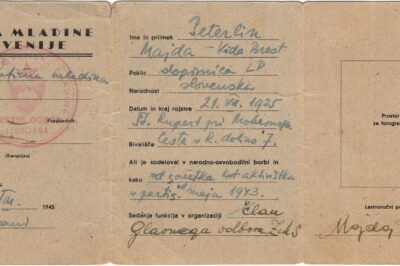 A MLADINE
VENIJE
mladina
LJUBLJANA
Predsednik
(Štampiljka)
1945
Ime in priimek Peterlin
Majda - Vida Brest
Poklic dopisnica LP
Narodnost slovenska
Datum in kraj rojstva 21. VII. 1925
Št. Rupert pri Mokronogu
Bivališče Cesta v R. dolino 7.
Ali je sodeloval v narodno-osvobodilni borbi in
kako od začetka kot aktivistka
v partiz. od maja 1943.
Sedanja funkcija v organizaciji član
Glavnega odbora ZMS
Prostor
za fotogra
Lastnoročni po